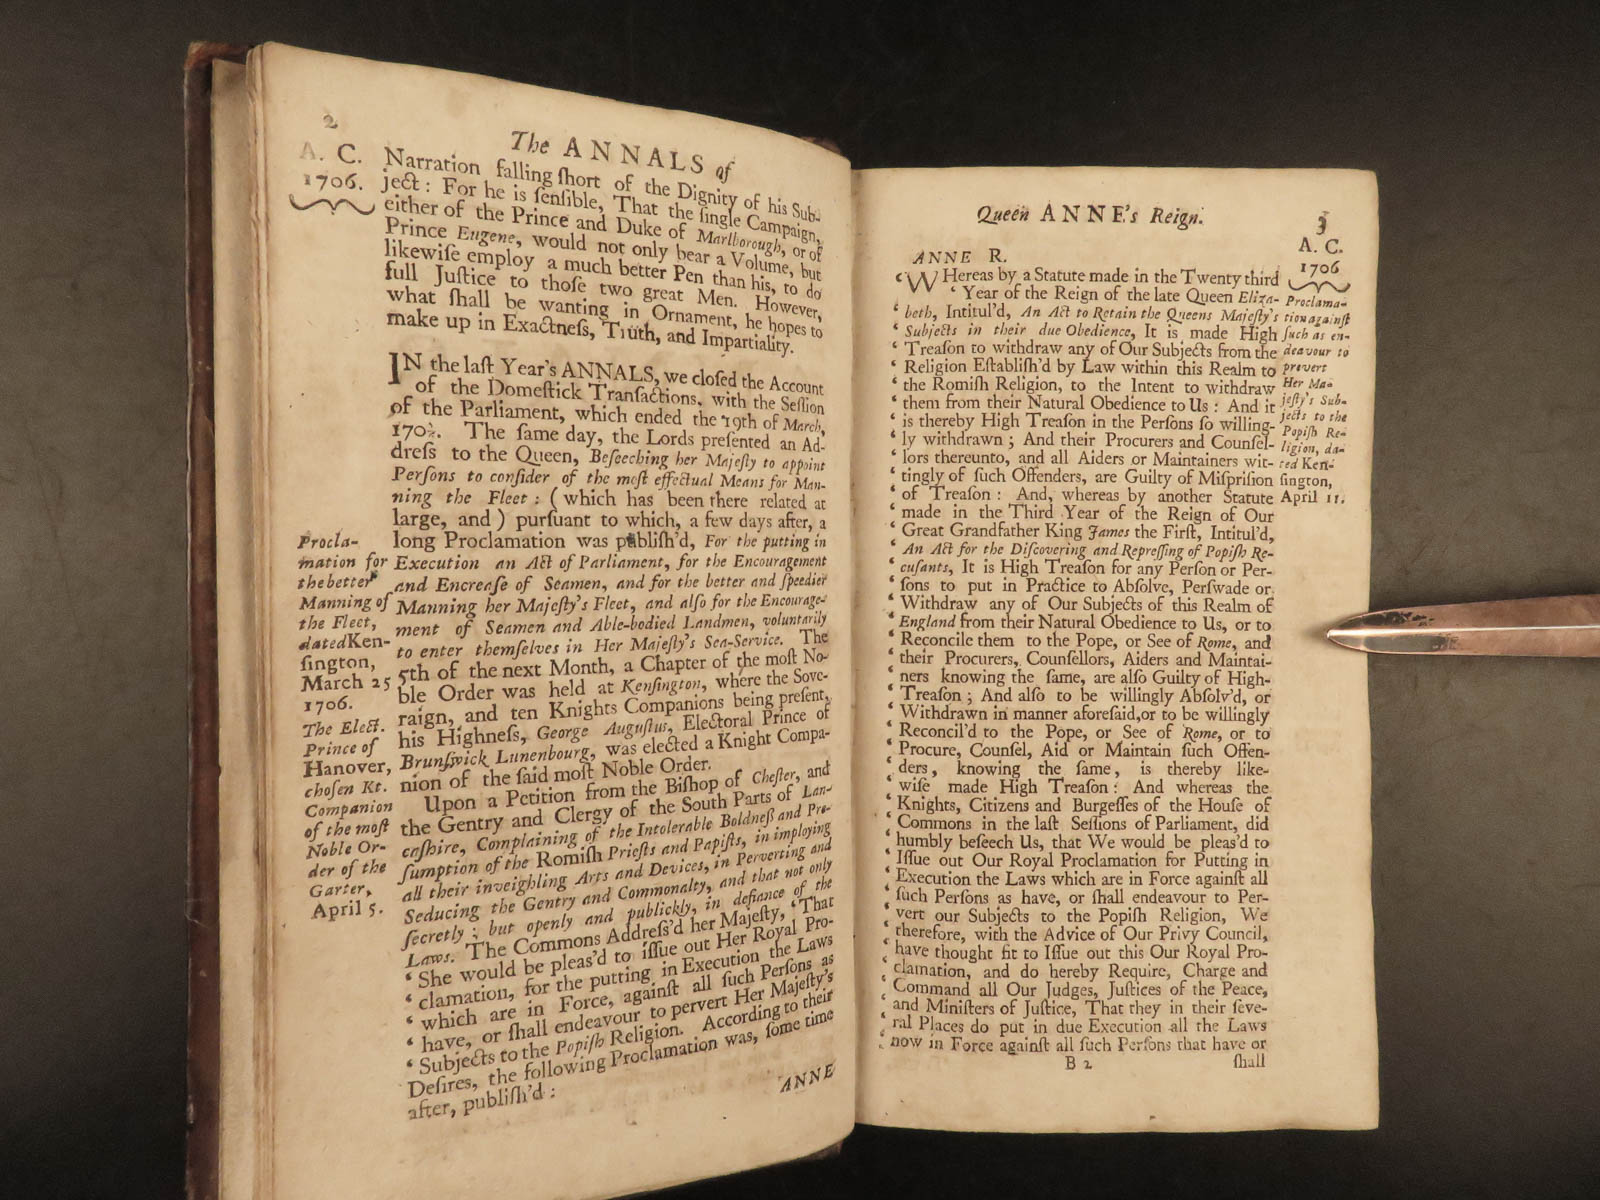 2
The ANNALS of
A. C.
1706.
Narration falling ſhort of the Dignity of his Sub-
ject: For he is ſenſible, That the ſingle Campaign,
either of the Prince and Duke of Marlborough, or of
Prince Eugene, would not only bear a Volume, but
likewiſe employ a much better Pen than his, to do
full Juſtice to thoſe two great Men. However,
what ſhall be wanting in Ornament, he hopes to
make up in Exactneſs, Truth, and Impartiality.
IN the laſt Year's ANNALS, we cloſed the Account
of the Domeſtick Tranſactions, with the Seſſion
of the Parliament, which ended the 19th of March,
170⅚. The ſame day, the Lords preſented an Ad-
dreſs to the Queen, Beſeeching her Majeſty to appoint
Perſons to conſider of the moſt effectual Means for Man-
ning the Fleet: (which has been there related at
large, and) purſuant to which, a few days after, a
long Proclamation was publiſh'd, For the putting in
Execution an Act of Parliament, for the Encouragement
and Encreaſe of Seamen, and for the better and ſpeedier
Manning her Majeſty's Fleet, and alſo for the Encourage-
ment of Seamen and Able-bodied Landmen, voluntarily
to enter themſelves in Her Majeſty's Sea-Service. The
5th of the next Month, a Chapter of the moſt No-
ble Order was held at Kenſington, where the Sove-
raign, and ten Knights Companions being preſent,
his Highneſs, George Auguſtus, Electoral Prince of
Brunſwick Lunenbourg, was elected a Knight Compa-
nion of the ſaid moſt Noble Order.
Upon a Petition from the Biſhop of Cheſter, and
the Gentry and Clergy of the South Parts of Lan-
caſhire, Complaining of the Intolerable Boldneſs and Pre-
ſumption of the Romiſh Prieſts and Papiſts, in imploying
all their inveighling Arts and Devices, in Perverting and
Seducing the Gentry and Commonalty, and that not only
ſecretly; but openly and publickly, in defiance of the
Laws. The Commons Addreſs'd her Majeſty, 'That
' She would be pleas'd to iſſue out Her Royal Pro-
' clamation, for the putting in Execution the Laws
' which are in Force, againſt all ſuch Perſons as
' have, or ſhall endeavour to pervert Her Majeſty's
' Subjects to the Popiſh Religion. According to their
Deſires, the following Proclamation was, ſome time
after, publiſh'd:
ANNE
Procla-
mation for
the better
Manning of
the Fleet,
dated Ken-
ſington,
March 25
1706.
The Elect.
Prince of
Hanover,
choſen Kt.
Companion
of the moſt
Noble Or-
der of the
Garter,
April 5.
Queen ANNE's Reign.
3
A. C.
1706
ANNE R.
' WHereas by a Statute made in the Twenty third
' Year of the Reign of the late Queen Eliza-
' beth, Intitul'd, An Act to Retain the Queens Majeſty's
' Subjects in their due Obedience, It is made High
' Treaſon to withdraw any of Our Subjects from the
' Religion Eſtabliſh'd by Law within this Realm to
' the Romiſh Religion, to the Intent to withdraw
' them from their Natural Obedience to Us: And it
' is thereby High Treaſon in the Perſons ſo willing-
' ly withdrawn; And their Procurers and Counſel-
' lors thereunto, and all Aiders or Maintainers wit-
' tingly of ſuch Offenders, are Guilty of Miſpriſion
' of Treaſon: And, whereas by another Statute
' made in the Third Year of the Reign of Our
' Great Grandfather King James the Firſt, Intitul'd,
' An Act for the Diſcovering and Repreſſing of Popiſh Re-
' cuſants, It is High Treaſon for any Perſon or Per-
' ſons to put in Practice to Abſolve, Perſwade or
' Withdraw any of Our Subjects of this Realm of
' England from their Natural Obedience to Us, or to
' Reconcile them to the Pope, or See of Rome, and
' their Procurers, Counſellors, Aiders and Maintai-
' ners knowing the ſame, are alſo Guilty of High-
' Treaſon; And alſo to be willingly Abſolv'd, or
' Withdrawn in manner aforeſaid, or to be willingly
' Reconcil'd to the Pope, or See of Rome, or to
' Procure, Counſel, Aid or Maintain ſuch Offen-
' ders, knowing the ſame, is thereby like-
' wiſe made High Treaſon: And whereas the
' Knights, Citizens and Burgeſſes of the Houſe of
' Commons in the laſt Seſſions of Parliament, did
' humbly beſeech Us, that We would be pleas'd to
' Iſſue out Our Royal Proclamation for Putting in
' Execution the Laws which are in Force againſt all
' ſuch Perſons as have, or ſhall endeavour to Per-
' vert our Subjects to the Popiſh Religion, We
' therefore, with the Advice of Our Privy Council,
' have thought fit to Iſſue out this Our Royal Pro-
' clamation, and do hereby Require, Charge and
' Command all Our Judges, Juſtices of the Peace,
' and Miniſters of Juſtice, That they in their ſeve-
' ral Places do put in due Execution all the Laws
' now in Force againſt all ſuch Perſons that have or
B 2
ſhall
Proclama-
tion againſt
ſuch as en-
deavour to
prevert
Her Ma-
jeſty's Sub-
jects to the
Popiſh Re-
ligion, da-
ted Ken-
ſington,
April 11.